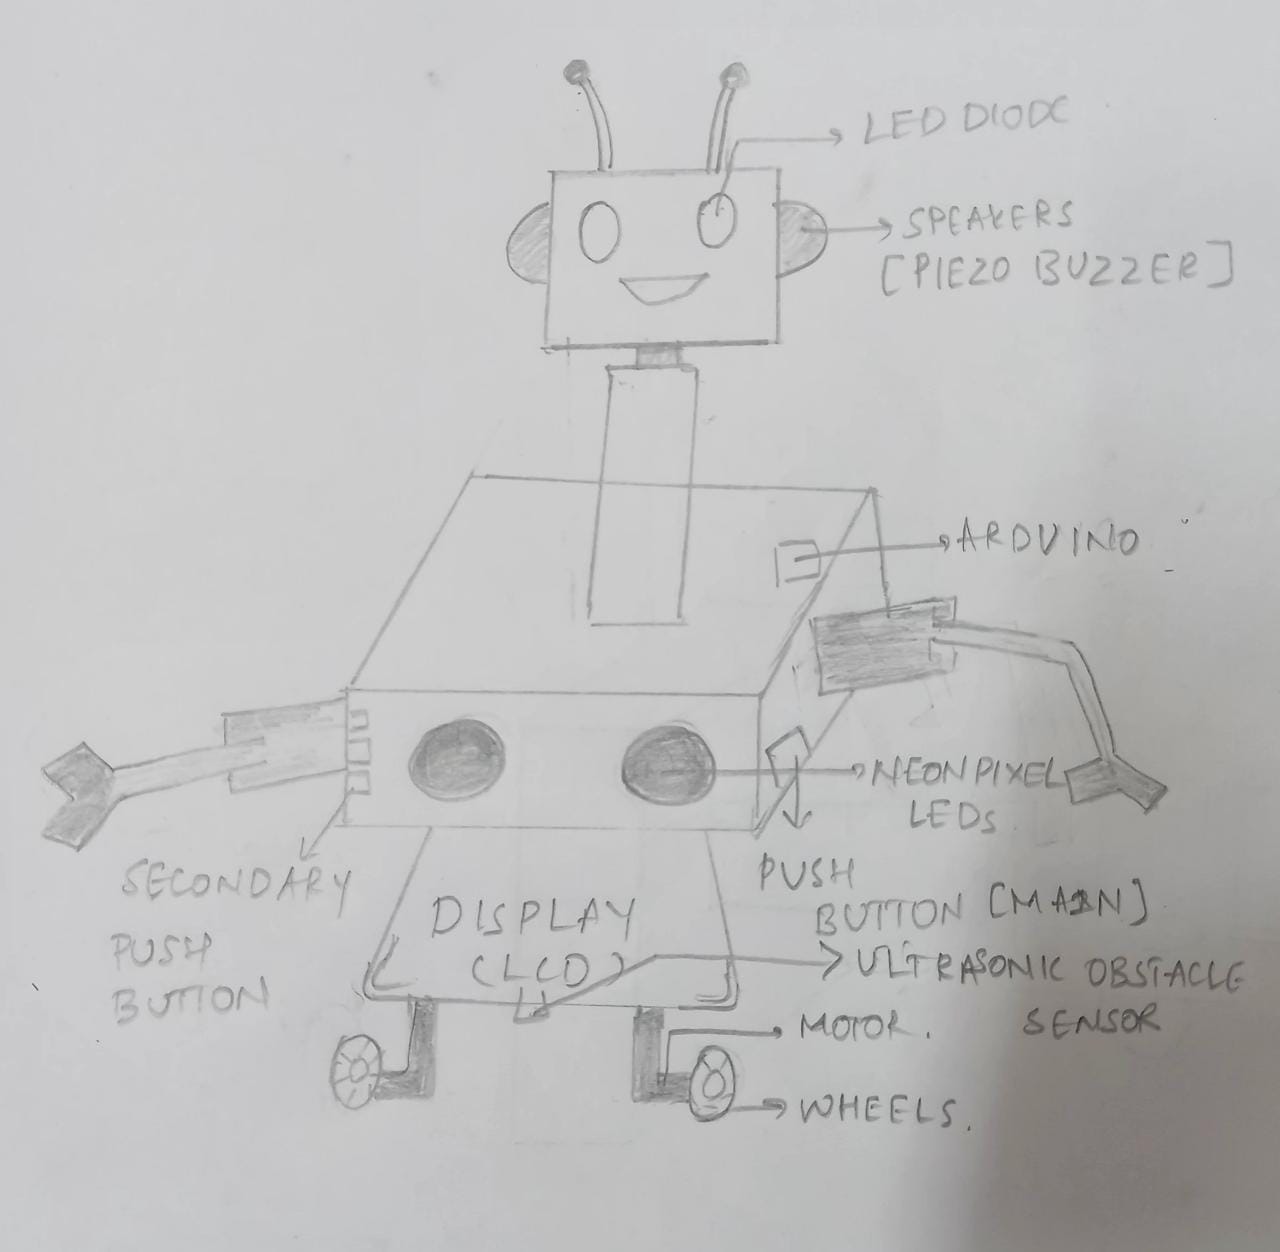 LED DIODE
SPEAKERS
[PIEZO BUZZER]
ARDUINO
NEONPIXEL
LEDs.
SECONDARY
PUSH
BUTTON
PUSH
BUTTON [MAIN]
DISPLAY
(LCD)
ULTRASONIC OBSTACLE
SENSOR
MOTOR.
WHEELS.